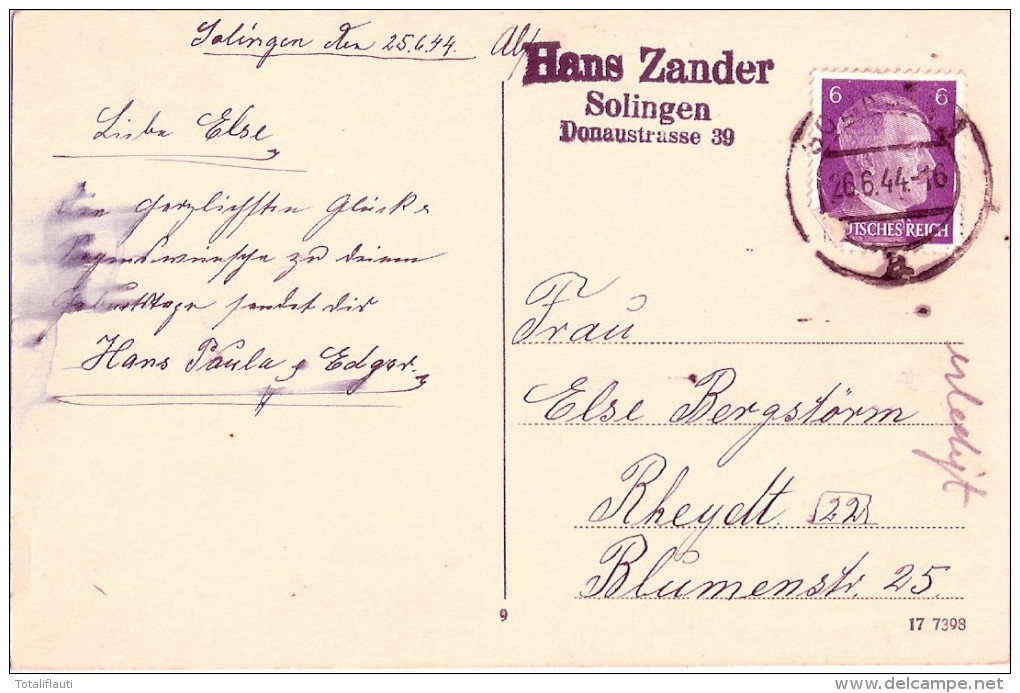 Solingen den 25.6.44.
Abs.
Hans Zander
Solingen
Donaustrasse 39
6 6
26.6.44.-16
DEUTSCHES REICH
a
Liebe Else
Die herzlichsten Glück &
Segenswünsche zu deinem
Geburtstage sendet dir
Hans Paula, Edgar.
Frau
Else Bergstörm
Rheydt. 22
Blumenstr. 25.
erledigt
9
17 7398
Totaliflauti
www.delcampe.net